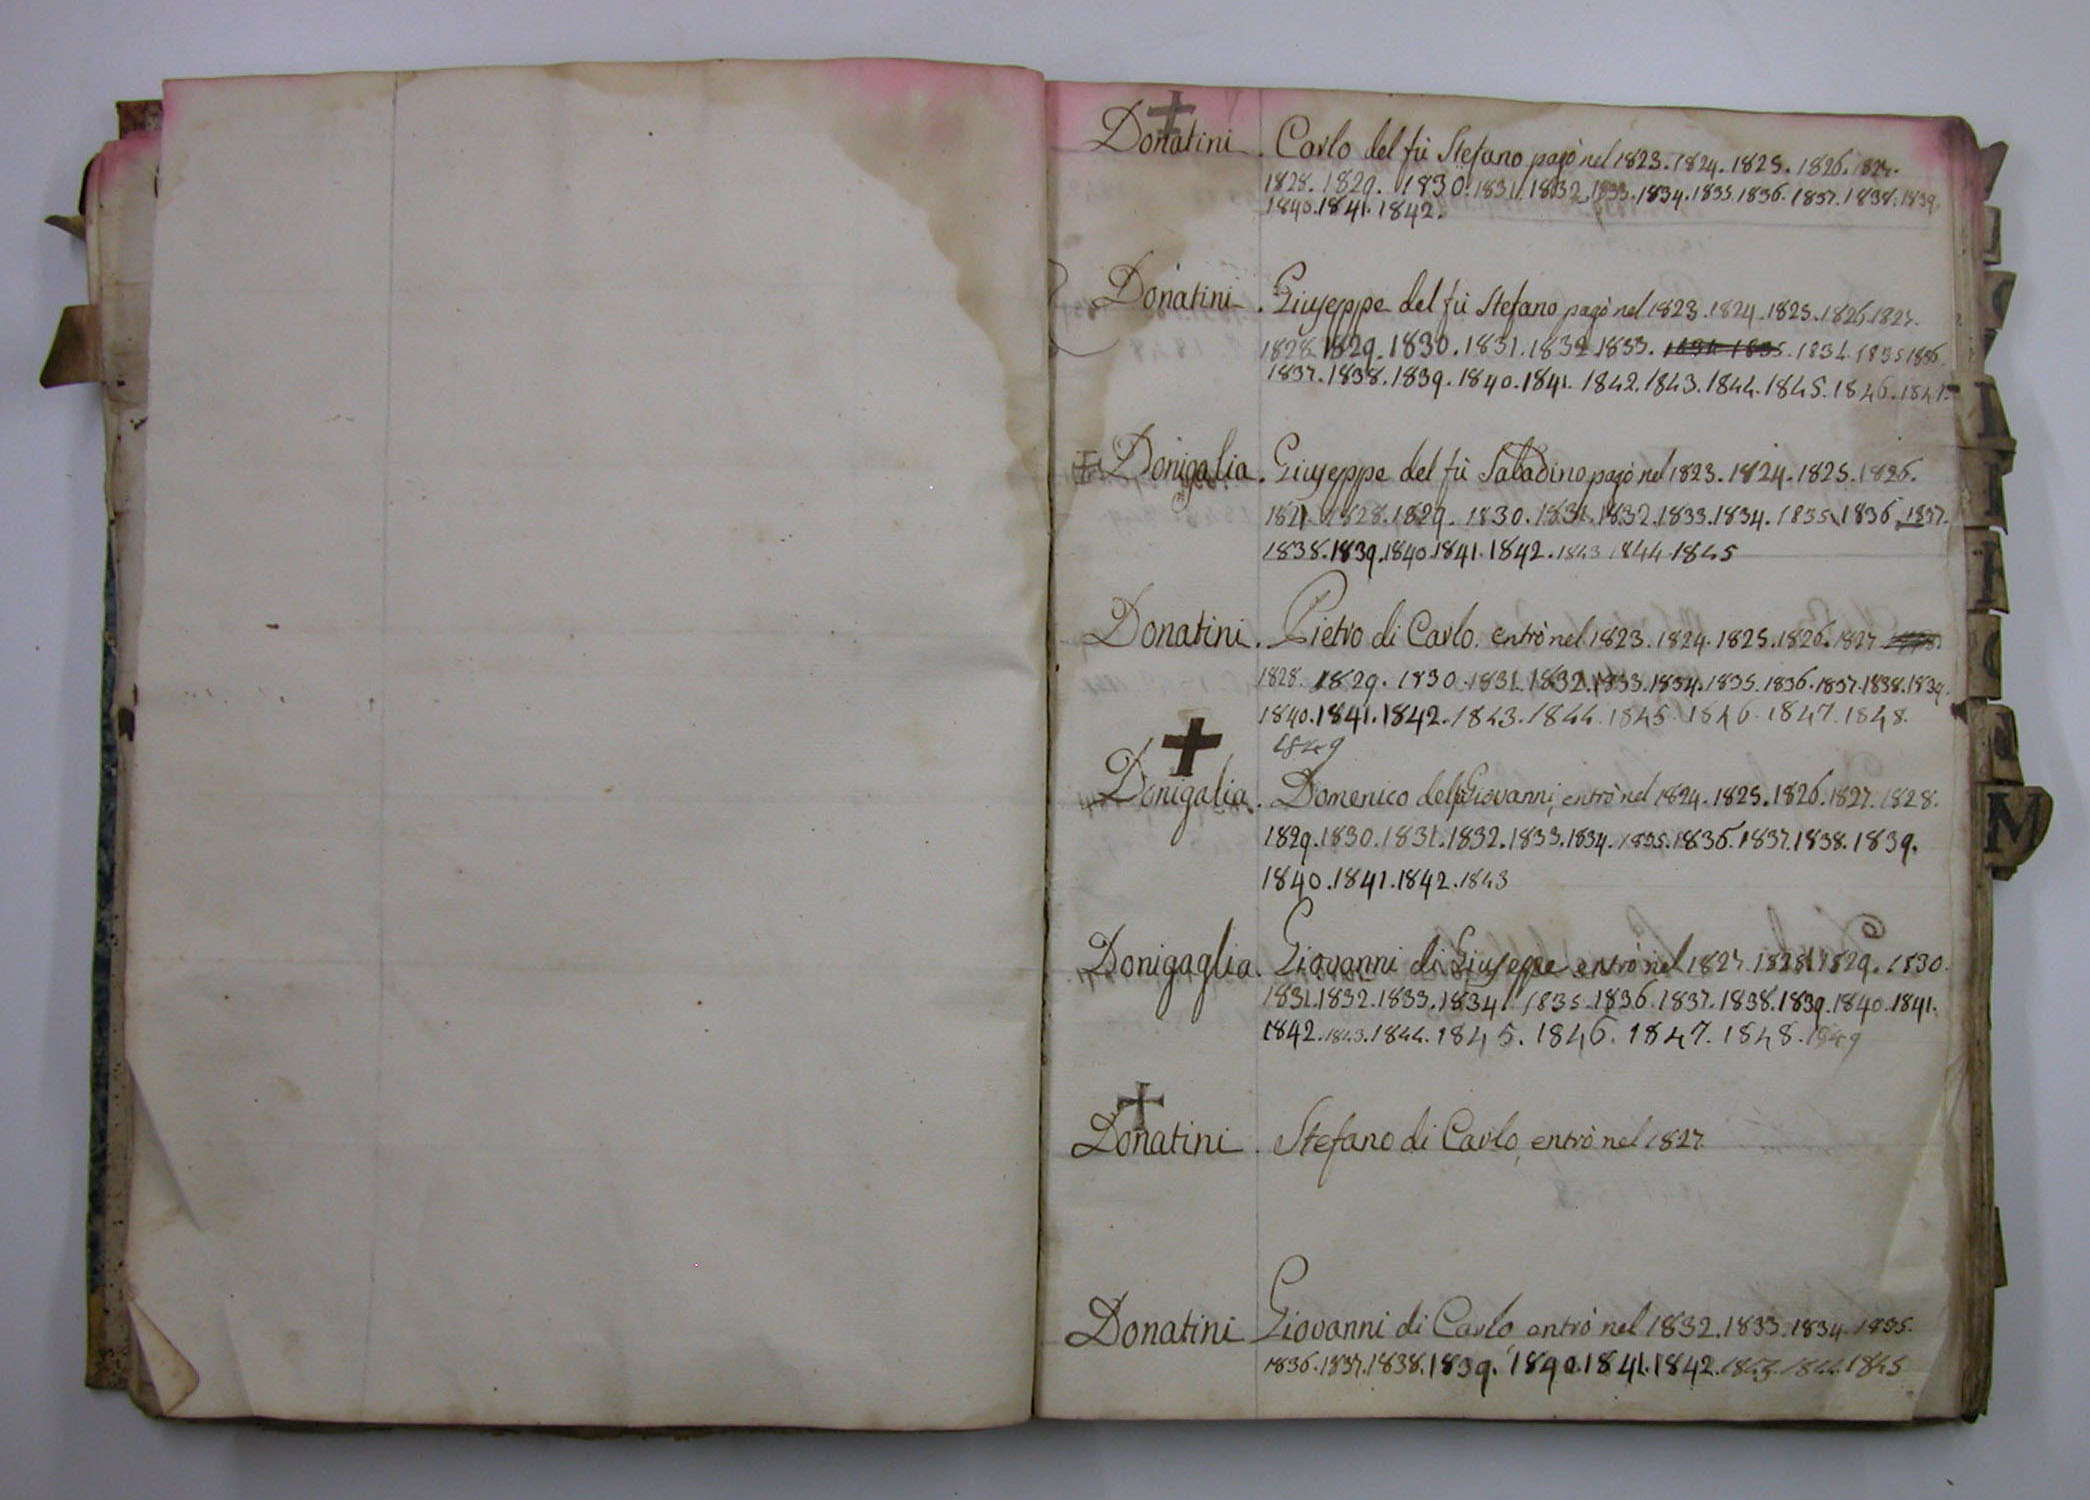 Donatini. Carlo del fù Stefano pagò nel 1823. 1824. 1825. 1826. 1827.
1828. 1829. 1830. 1831. 1832. 1833. 1834. 1835. 1836. 1837. 1838. 1839.
1840. 1841. 1842.
Donatini. Giuseppe del fù Stefano pagò nel 1823. 1824. 1825. 1826. 1827.
1828. 1829. 1830. 1831. 1832. 1833. 1834. 1835. 1834. 1835 1836
1837. 1838. 1839. 1840. 1841. 1842. 1843. 1844. 1845. 1846. 1847.
Donigalia. Giuseppe del fù Sabadino pagò nel 1823. 1824. 1825. 1826.
1827. 1828. 1829. 1830. 1831. 1832. 1833. 1834. 1835. 1836. 1837.
1838. 1839. 1840. 1841. 1842. 1843 1844. 1845
Donatini. Pietro di Carlo. entrò nel 1823. 1824. 1825. 1826. 1827
1828. 1829. 1830. 1831. 1832. 1833. 1834. 1835. 1836. 1837. 1838. 1839.
1840. 1841. 1842. 1843. 1844. 1845. 1846. 1847. 1848.
1849
Donigalia. Domenico del Giovanni, entrò nel 1824. 1825. 1826. 1827. 1828.
1829. 1830. 1831. 1832. 1833. 1834. 1835. 1836. 1837. 1838. 1839.
1840. 1841. 1842. 1843
Donigaglia. Giovanni di Giuseppe entrò nel 1827. 1828. 1829. 1830.
1831. 1832. 1833. 1834. 1835. 1836. 1837. 1838. 1839. 1840. 1841.
1842. 1843. 1844. 1845. 1846. 1847. 1848. 1849
Donatini. Stefano di Carlo, entrò nel 1827.
Donatini Giovanni di Carlo entrò nel 1832. 1833. 1834. 1835.
1836. 1837. 1838. 1839. 1840. 1841. 1842. 1843. 1844. 1845
M